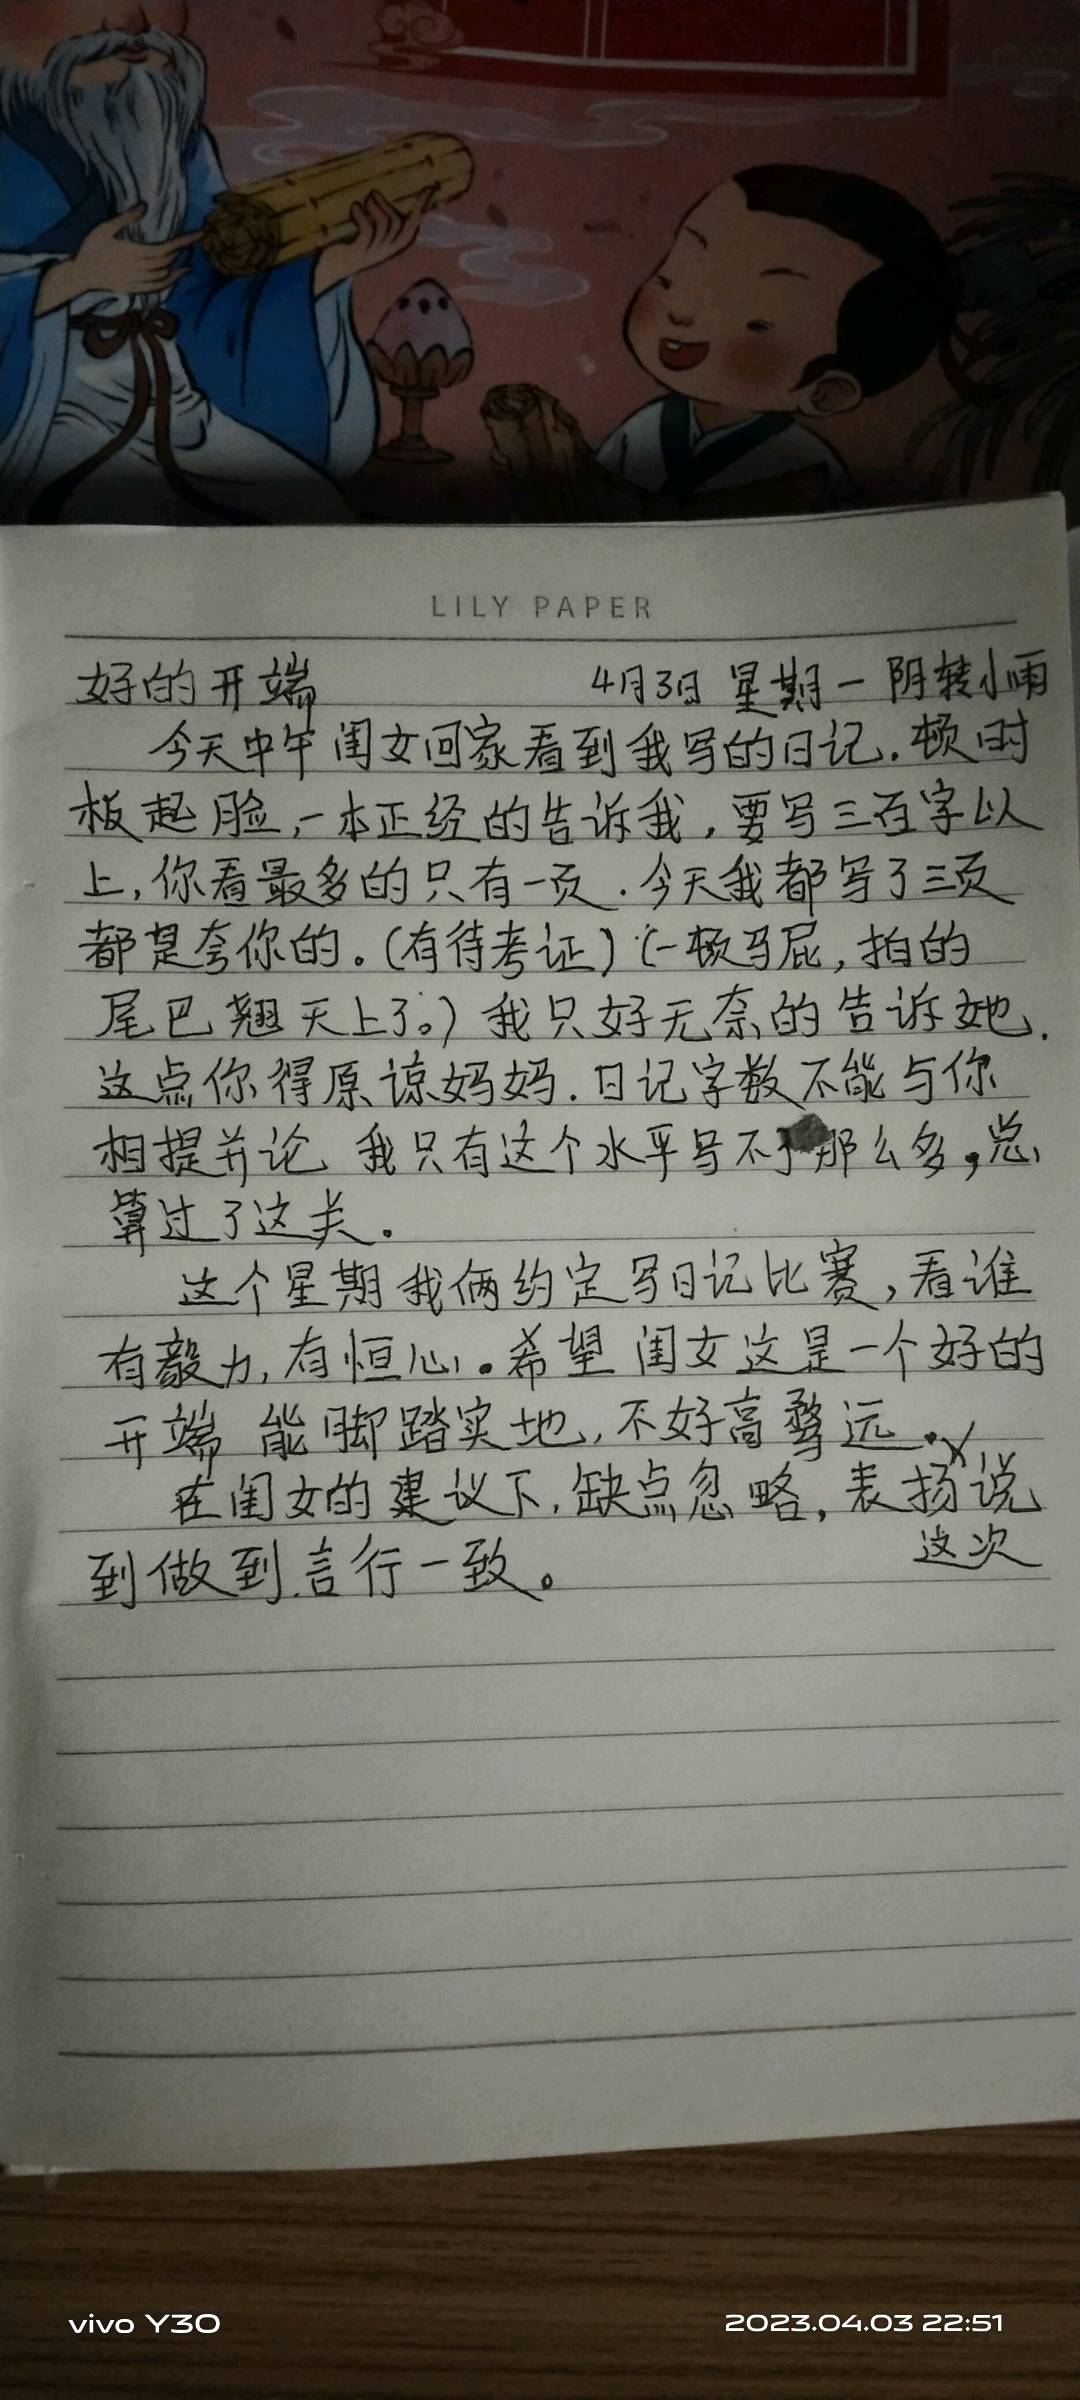 LILY PAPER
好的开端 4月3日 星期一 阴转小雨
今天中午闺女回家看到我写的日记.顿时
板起脸,一本正经的告诉我,要写三百字以
上,你看最多的只有一页.今天我都写了三页
都是夸你的。(有待考证)(一顿马屁,拍的
尾巴翘天上了。)我只好无奈的告诉她.
这点你得原谅妈妈.日记字数不能与你
相提并论 我只有这个水平写不了那么多,总
算过了这关.
这个星期我俩约定写日记比赛,看谁
有毅力,有恒心.希望闺女这是一个好的
开端 能脚踏实地,不好高骛远.
在闺女的建议下.缺点忽略,表扬说
这次
到做到.言行一致。
vivo Y30
2023.04.03 22:51